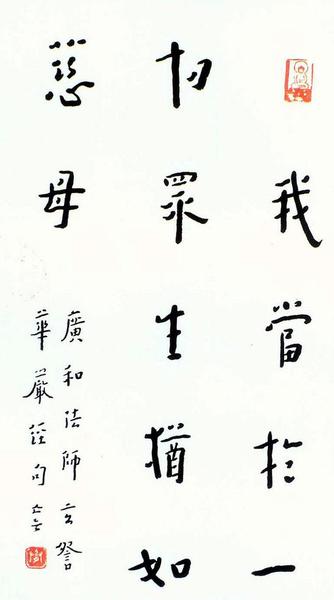 我當於一
切眾生猶如
慈母
廣和法師
華嚴經句